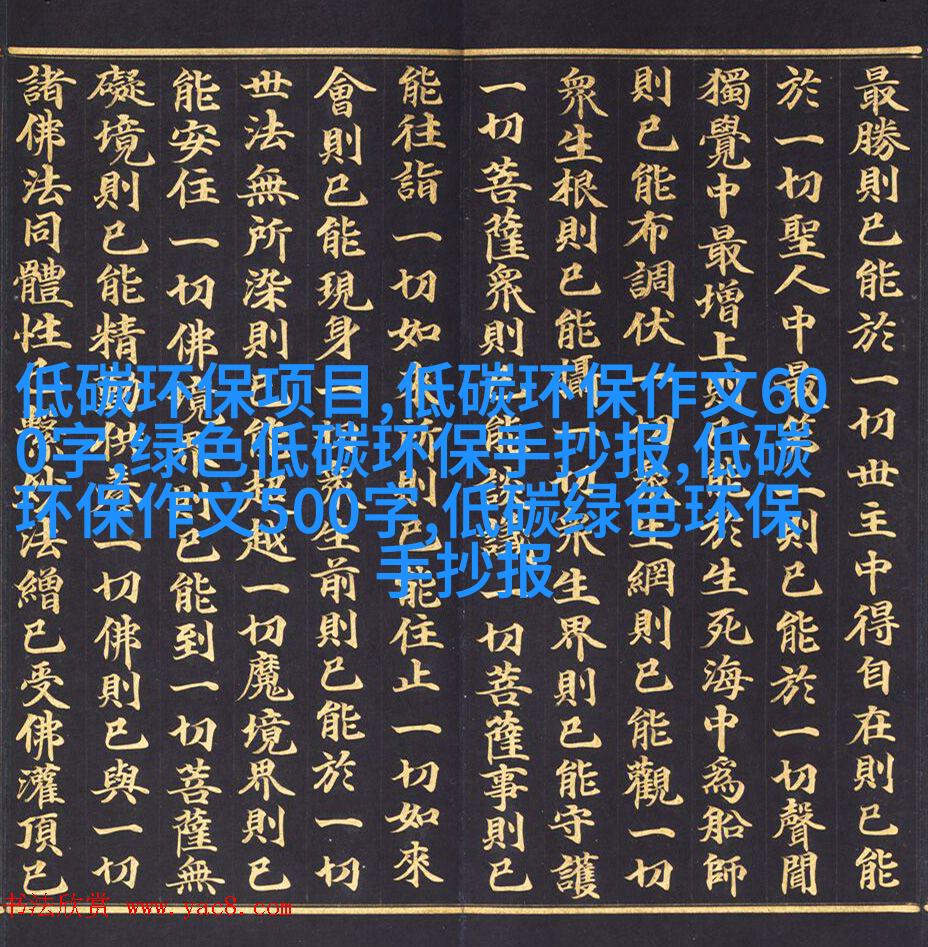 最勝則已能於一切世主中得自在則已能
於一切聖人中最則已能於一切聲聞
獨覺中最增上則已能於生死海中爲船師
則已能布調伏一切衆生網則已能觀一切
衆生根則已能攝一切衆生界則已能守護
一切菩薩衆則已能談議一切菩薩事則已
能往詣一切如來所則已能住止一切如來
會則已能現身一切衆生前則已能於一切
世法無所染則已能超越一切魔境界則已
能安住一切佛境界則已能到一切菩薩無
礙境則已能精勤供養一切佛則已與一切
諸佛法同體性已繫妙法繒已受佛灌頂已
低碳环保项目,低碳环保作文60
0字,绿色低碳环保手抄报,低碳
环保作文500字,低碳绿色环保
手抄报
书法欣赏 www.yac8.com